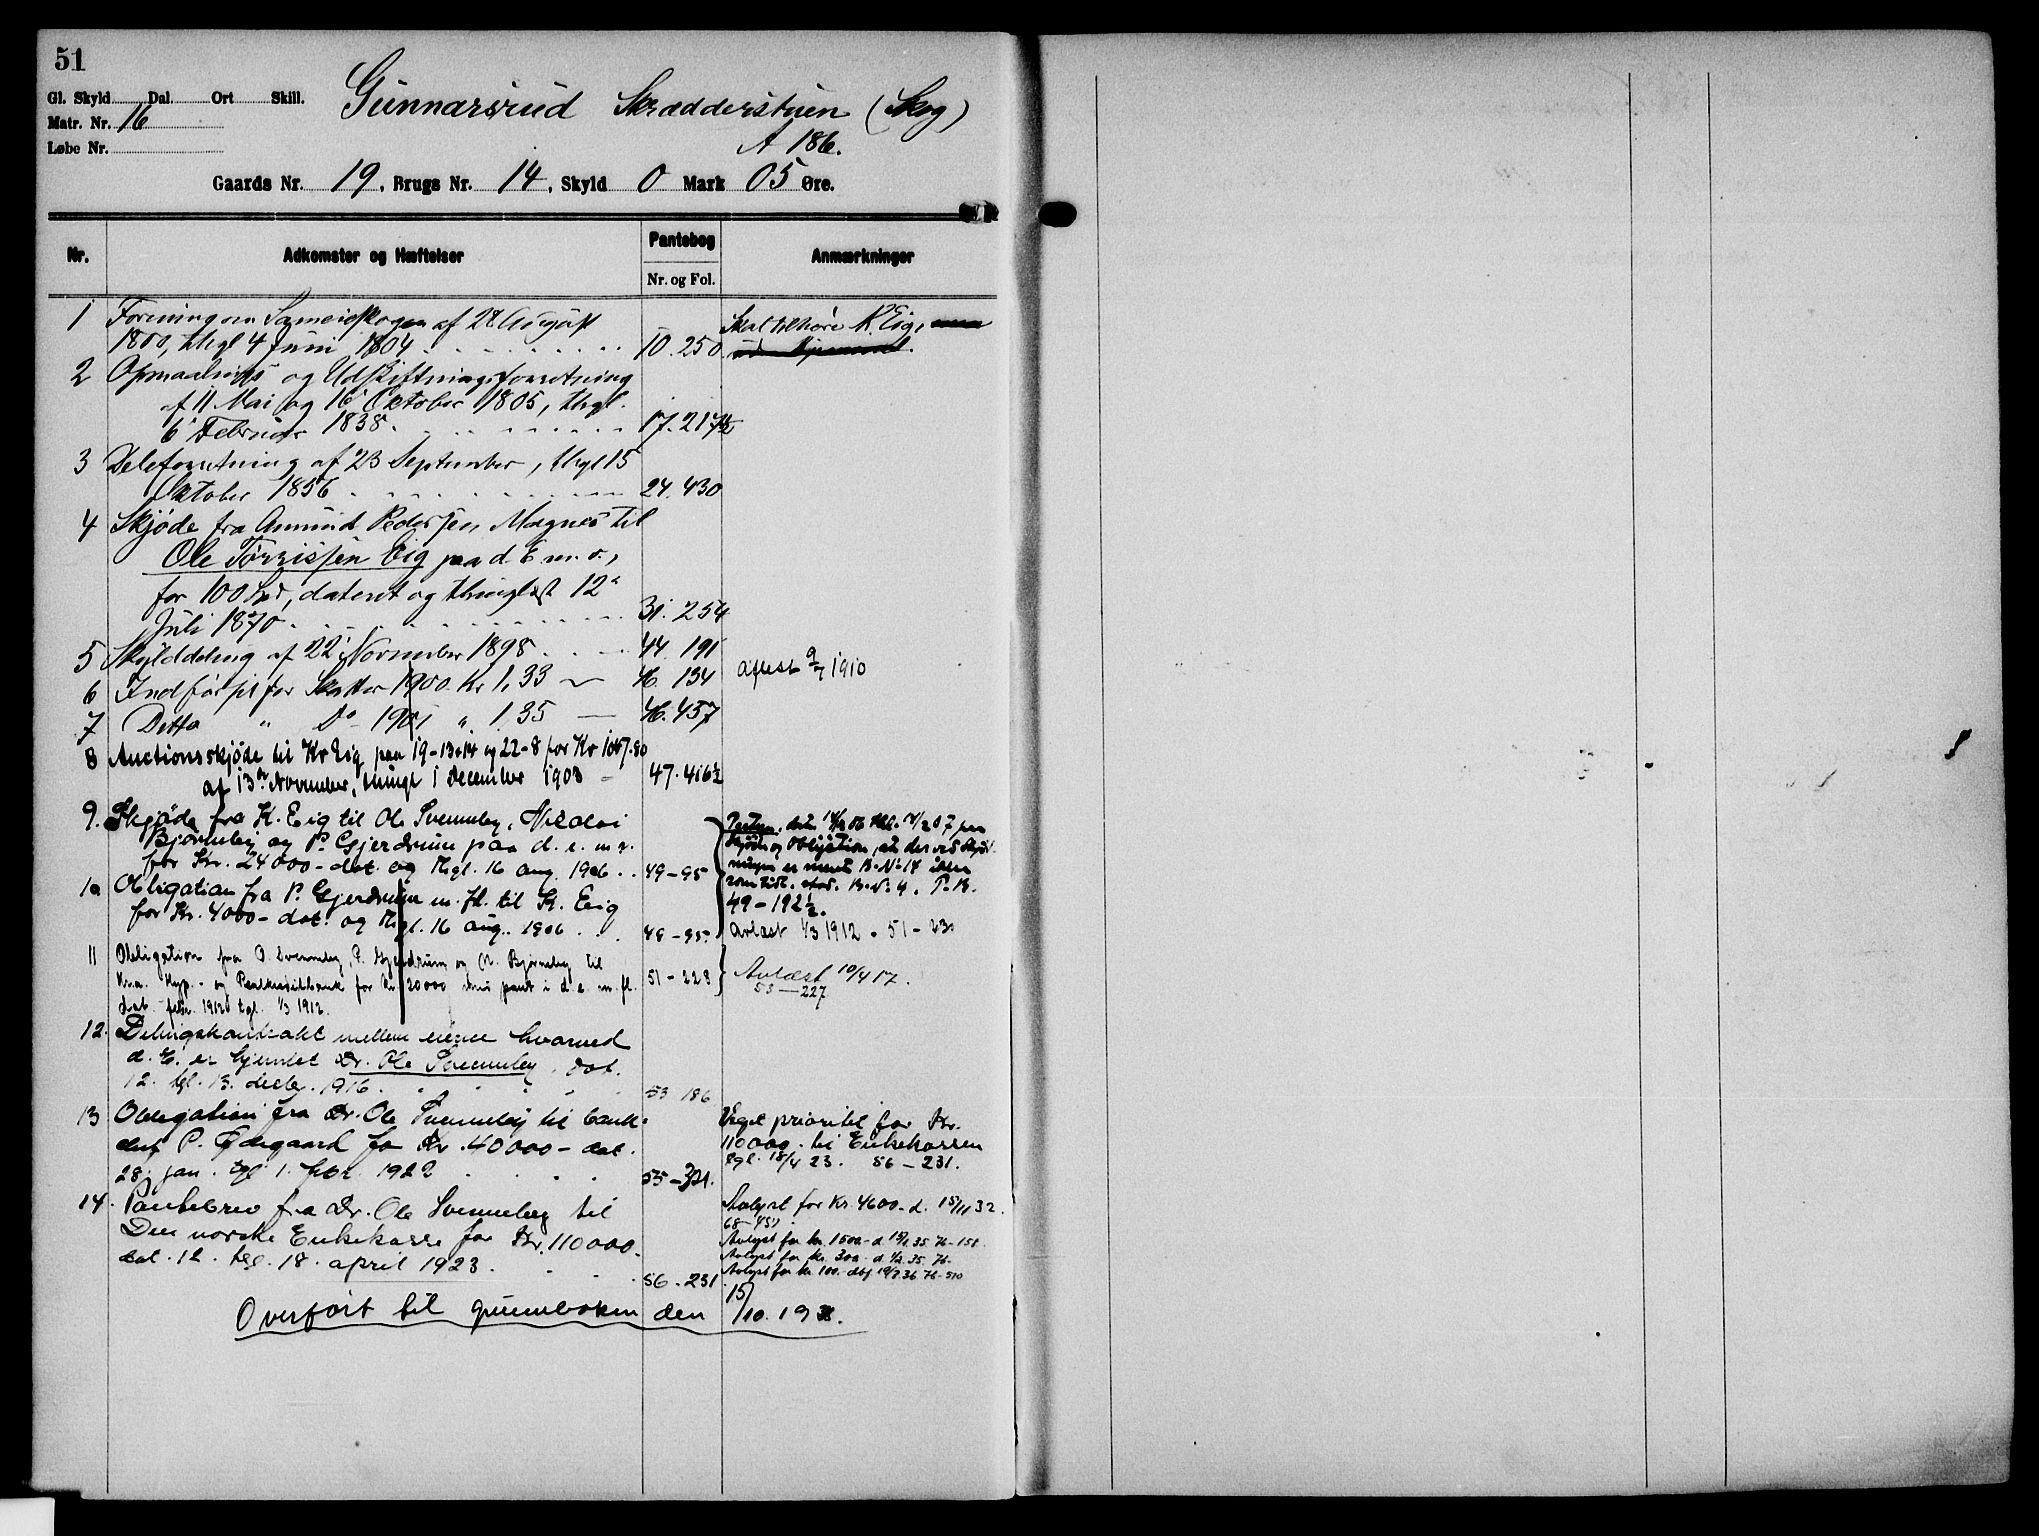 51
Gl. Skyld Dal. Ort Skill.
Gunnarsrud Skrædderstuen (Skog)
Matr. Nr. 16
A 186.
Løbe Nr.
Gaards Nr. 19, Brugs Nr. 14, Skyld 0 Mark 05 Øre.
Nr. Adkomster og Hæftelser Pantebog Nr. og Fol. Anmærkninger
1 Forening om Sameieskogen af 28 August
1800, thgl 4 Juni 1804 10. 250 Skal tilhøre K. Eig,
2 Opmaalings og Udskiftningsforretning
af 11 Mai og 16 Oktober 1805, thgl.
6 Februar 1838. 17. 217½
3 Deleforretning af 23 September, thgl 15
Oktober 1856 24. 430
4 Skjøde fra Amund Pedersen Magnes til
Ole Tørrissen Eig paa d. E m. v.,
for 100 Spd, dateret og thinglæst 12
Juli 1870. 31. 254
5 Skylddeling af 22 November 1898 44. 191
6 Indførsel for Skatter 1900. Kr 1,33 46. 134 aflæst 9/7 1910
7 Ditto " Do 1901 " 1.35 46. 457
8 Auctionsskjøde til Kr Eig paa 19-13 & 14 og 22-8 for Kr 1047.80
af 13de November, thingl 1 december 1903 47. 416½
9. Skjøde fra K. Eig til Ole Svenneby, Nicolai
Bjørneby og P. Gjerdrum paa d. e. m. v.
for Kr. 24000 - dat. og thgl. 16 aug. 1906 49-95
Obligation, at der ved
er ment B. No 14 ikke
B. No 4. P. B.
49-192½.
10 Obligation fra P. Gjerdrum m. fl. til K. Eig
for Kr. 4000 - dat. og thgl. 16 aug. 1906 49-95 avlæst 1/3 1912. 51-231
11 Obligation fra O. Svenneby, P. Gjerdrum og N. Bjørneby til
Kra. Hyp. - og Realkreditbank for kr. 20000 mod pant i d. e. m. fl. 51-228 Avlæst 10/4 17.
dat. febr. 1912 tgl. 1/3 1912. 53-227
12. Delingskontrakt mellem eierne hvorved
d. E. er hjemlet Dr. Ole Svenneby. dat.
12. tgl. 13. decbr. 1916. 53 186
13 Obligation fra Dr. Ole Svenneby til
P. Ødegaard for Kr. 40000 - dat.
28. jan. tgl 1. febr. 1922 55-321.
Veget prioritet for Kr.
110000. til Enkekassen
tgl. 18/4 23. 56-231.
14. Pantebrev fra Dr. Ole Svenneby til
Den norske Enkekasse for Kr. 110000.
dat. 12. tgl. 18. april 1923. 56-231
Avlyst for kr. 4600-d. 15/11 32.
68-451
Avlyst for kr. 1500.-d 35 76-158.
Avlyst for kr. 300 - d 35. 76.
Avlyst for kr. 100.- 36 76-510
Overført til grunnboken den 15/10. 19